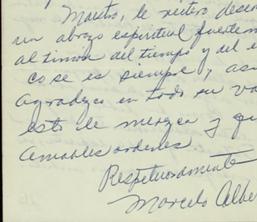 Maestro, le reitero deseo
un abrazo espiritual fuertem
al timón del tiempo y del e
co se es siempre, as
Agradezco en todo su va
esto le merezca y qu
amables ordenes
Respetuosamente
Marcelo Albe